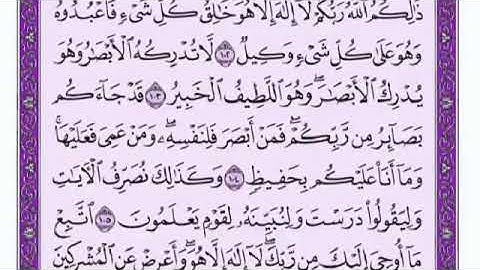 ذَٰلِكُمُ ٱللَّهُ رَبُّكُمْ لَآ إِلَٰهَ إِلَّا هُوَ خَٰلِقُ كُلِّ شَىْءٍ فَٱعْبُدُوهُ
وَهُوَ عَلَىٰ كُلِّ شَىْءٍ وَكِيلٌ ١٠٢ لَّا تُدْرِكُهُ ٱلْأَبْصَٰرُ وَهُوَ
يُدْرِكُ ٱلْأَبْصَٰرَ ۖ وَهُوَ ٱللَّطِيفُ ٱلْخَبِيرُ ١٠٣ قَدْ جَآءَكُم
بَصَآئِرُ مِن رَّبِّكُمْ ۖ فَمَنْ أَبْصَرَ فَلِنَفْسِهِۦ ۖ وَمَنْ عَمِىَ فَعَلَيْهَا ۚ
وَمَآ أَنَا۠ عَلَيْكُم بِحَفِيظٍ ١٠٤ وَكَذَٰلِكَ نُصَرِّفُ ٱلْءَايَٰتِ
وَلِيَقُولُوا۟ دَرَسْتَ وَلِنُبَيِّنَهُۥ لِقَوْمٍ يَعْلَمُونَ ١٠٥ ٱتَّبِعْ
مَآ أُوحِىَ إِلَيْكَ مِن رَّبِّكَ ۖ لَآ إِلَٰهَ إِلَّا هُوَ ۖ وَأَعْرِضْ عَنِ ٱلْمُشْرِكِينَ